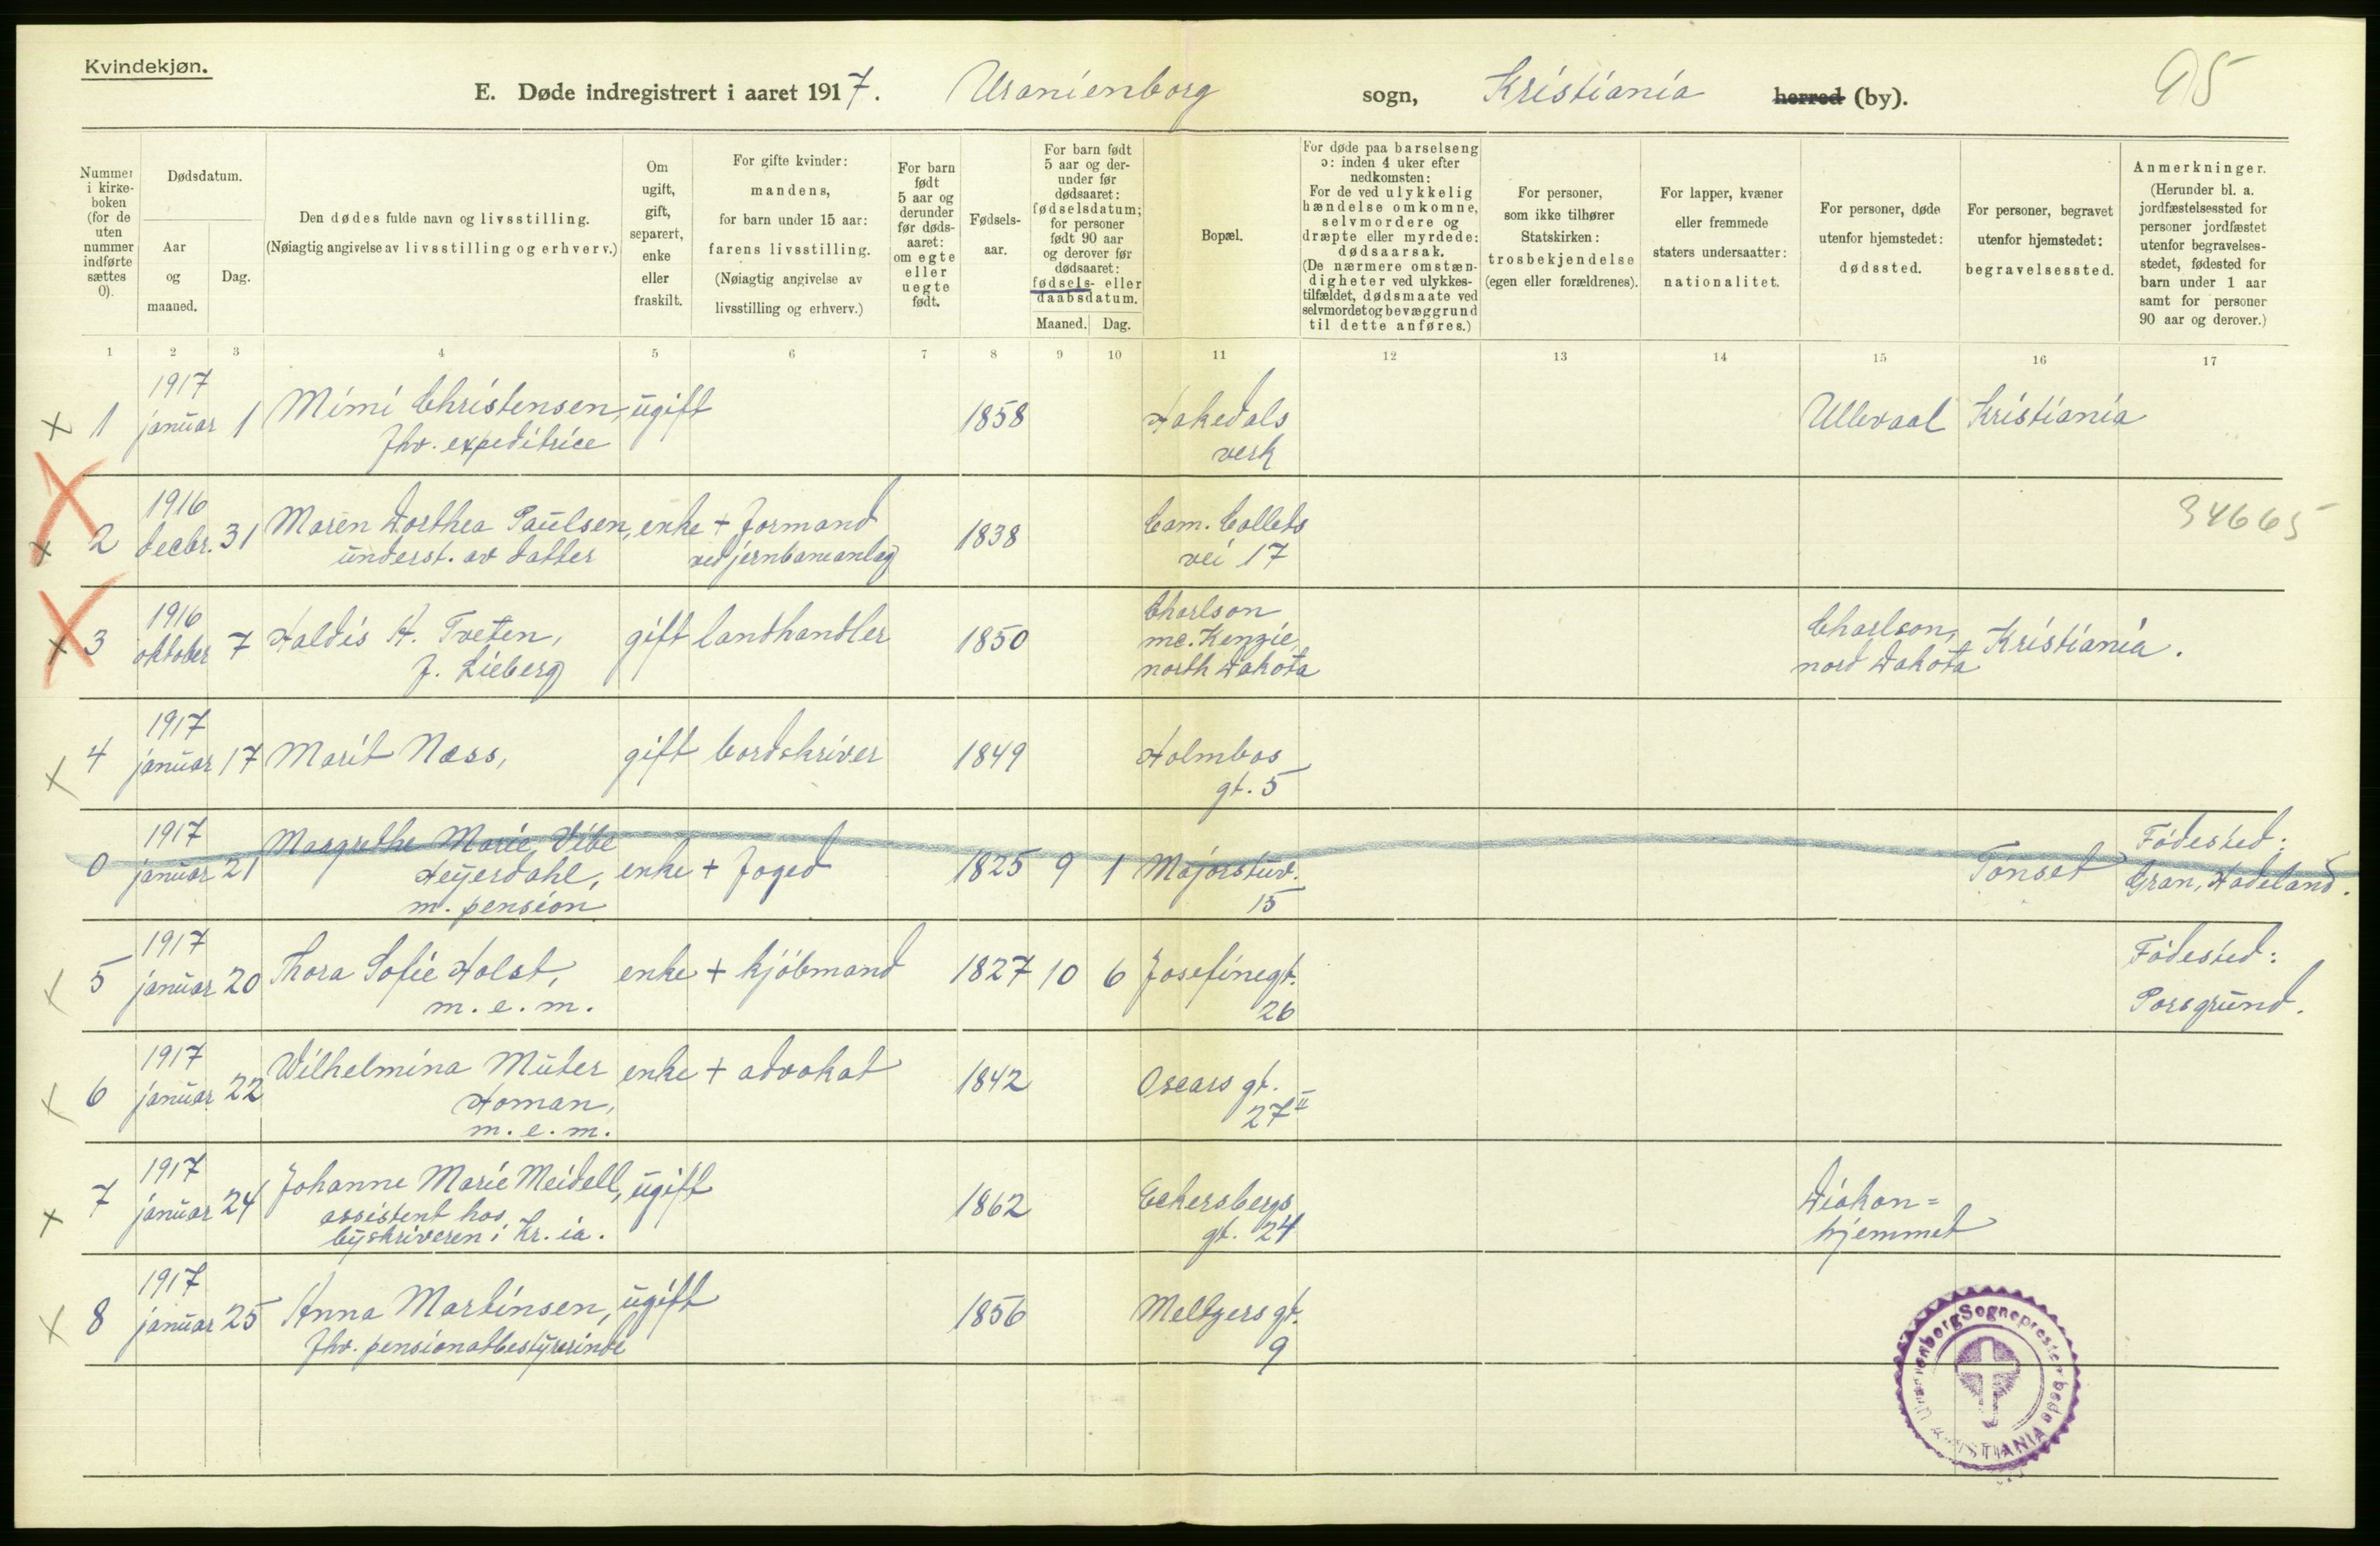 Kvindekjøn.
E. Døde indregistrert i aaret 1917. Uranienborg sogn, Kristiania herred (by).
95
Nummer i kirkeboken (for de uten nummer indførte sættes 0).
Dødsdatum.
Aar og maaned.
Dag.
Den dødes fulde navn og livsstilling.
(Nøiagtig angivelse av livsstilling og erhverv.)
Om ugift, gift, separert, enke eller fraskilt.
For gifte kvinder: mandens, for barn under 15 aar: farens livsstilling. (Nøiagtig angivelse av livsstilling og erhverv.)
For barn født 5 aar og derunder før dødsaaret: om egte eller uegte født.
Fødselsaar.
For barn født 5 aar og derunder før dødsaaret: fødselsdatum; for personer født 90 aar og derover før dødsaaret: fødsels- eller daabsdatum.
Maaned. Dag.
Bopæl.
For døde paa barselseng ɔ: inden 4 uker efter nedkomsten: For de ved ulykkelig hændelse omkomne, selvmordere og dræpte eller myrdede: dødsaarsak. (De nærmere omstændigheter ved ulykkestilfældet, dødsmaate ved selvmordet og bevæggrund til dette anføres.)
For personer, som ikke tilhører Statskirken: trosbekjendelse (egen eller forældrenes).
For lapper, kvæner eller fremmede staters undersaatter: nationalitet.
For personer, døde utenfor hjemstedet: dødssted.
For personer, begravet utenfor hjemstedet: begravelsessted.
Anmerkninger. (Herunder bl. a. jordfæstelsessted for personer jordfæstet utenfor begravelsesstedet, fødested for barn under 1 aar samt for personer 90 aar og derover.)
1 2 3 4 5 6 7 8 9 10 11 12 13 14 15 16 17
1917
x 1 januar 1 Mimi Christensen, ugift 1858 Hakedals Ullevaal Kristiania
fhv. expeditrice verk
1916
x 2 decbr. 31 Maren Dorthea Paulsen, enke + formand 1838 Cam. Colletts 34665
underst. av datter ved jernbaneanlæg vei 17
1916 Charlson
x 3 oktober 7 Haldis H. Tveten, gift landhandler 1850 mc. Kenzie, Charlson, Kristiania.
f. Lieberg north Dakota nord Dakota
1917
x 4 januar 17 Marit Næss, gift bordskriver 1849 Holmbos
gt. 5
1917 Margrethe Marie Vibe Fødested:
0 januar 21 Heyerdahl, enke + foged 1825 9 1 Majorstuv. Tønset Gran, Hadeland.
m. pension 15
1917 Fødested:
x 5 januar 20 Thora Sofie Holst, enke + kjøbmand 1827 10 6 Josefinegt.
m. e. m. 26 Porsgrund.
1917
x 6 januar 22 Wilhelmina Müter enke + advokat 1842 Oscars gt.
Homan, 27 II
m. e. m.
1917
x 7 januar 24 Johanne Marie Meidell, ugift 1862 Eckersbergs Diakon=
assistent hos gt. 24 hjemmet
byskriveren i Kr.ia.
1917
x 8 januar 25 Anna Martinsen, ugift 1856 Meltzers gt.
fhv. pensionatbestyrerinde 9
Uranienborg Sogneprestembede KRISTIANIA